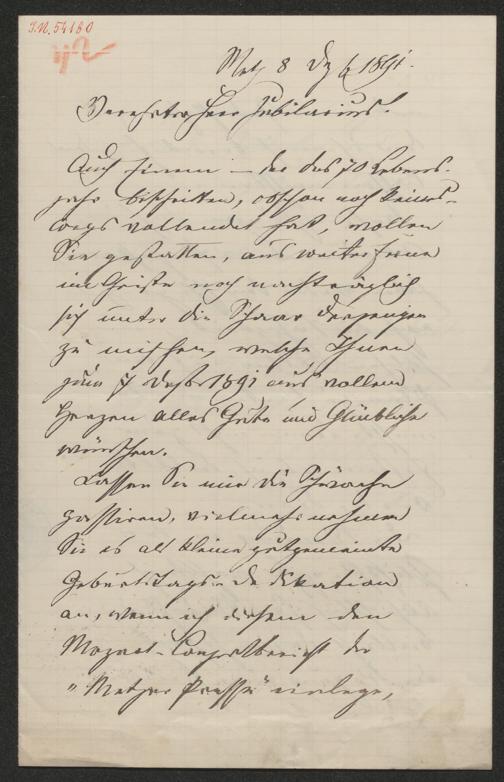 J.N. 54180
Metz 8 Dez 1891.
Verehrter Herr Jubilarius!
Auch Einem – der das 70 Lebens-
jahr beschritten, obschon noch keines-
wegs vollendet hat, wollen
Sie gestatten, aus weiter Ferne
im Geiste noch nachträglich
sich unter die Schaar derjenigen
zu mischen, welche Ihnen
zum 7 Dezbr 1891 aus vollem
Herzen alles Gute und Glückliche
wünschen.
Lassen Sie mir die Schwäche
passiren, vielmehr nehmen
Sie es als kleine gutgemeinte
Geburtstags-Dedikation
an, wenn ich diesem den
Mozart-Concertbericht der
"Metzer Presse" einlege,